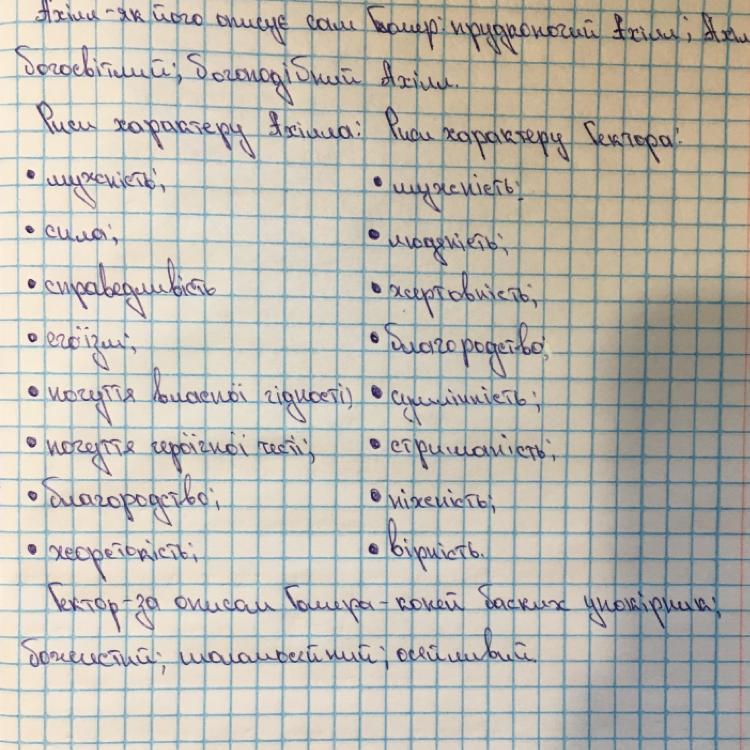 Ахілл-як його описує сам Гомер: прудконогий Ахілл; Ахіл
богосвітлий; богоподібний Ахілл.
Риси характеру Ахілла: Риси характеру Гектора:
• мужність; • мужність;
• сила; • людяність;
• справедливість • жертовність;
• егоїзм; • благородство;
• почуття власної гідності; • сумлінність;
• почуття героїчної честі; • стриманість;
• благородство; • ніжність;
• жорстокість; • вірність.
Гектор-за описом Гомера-коней баских упокірник;
божистий; шоломосяйний;